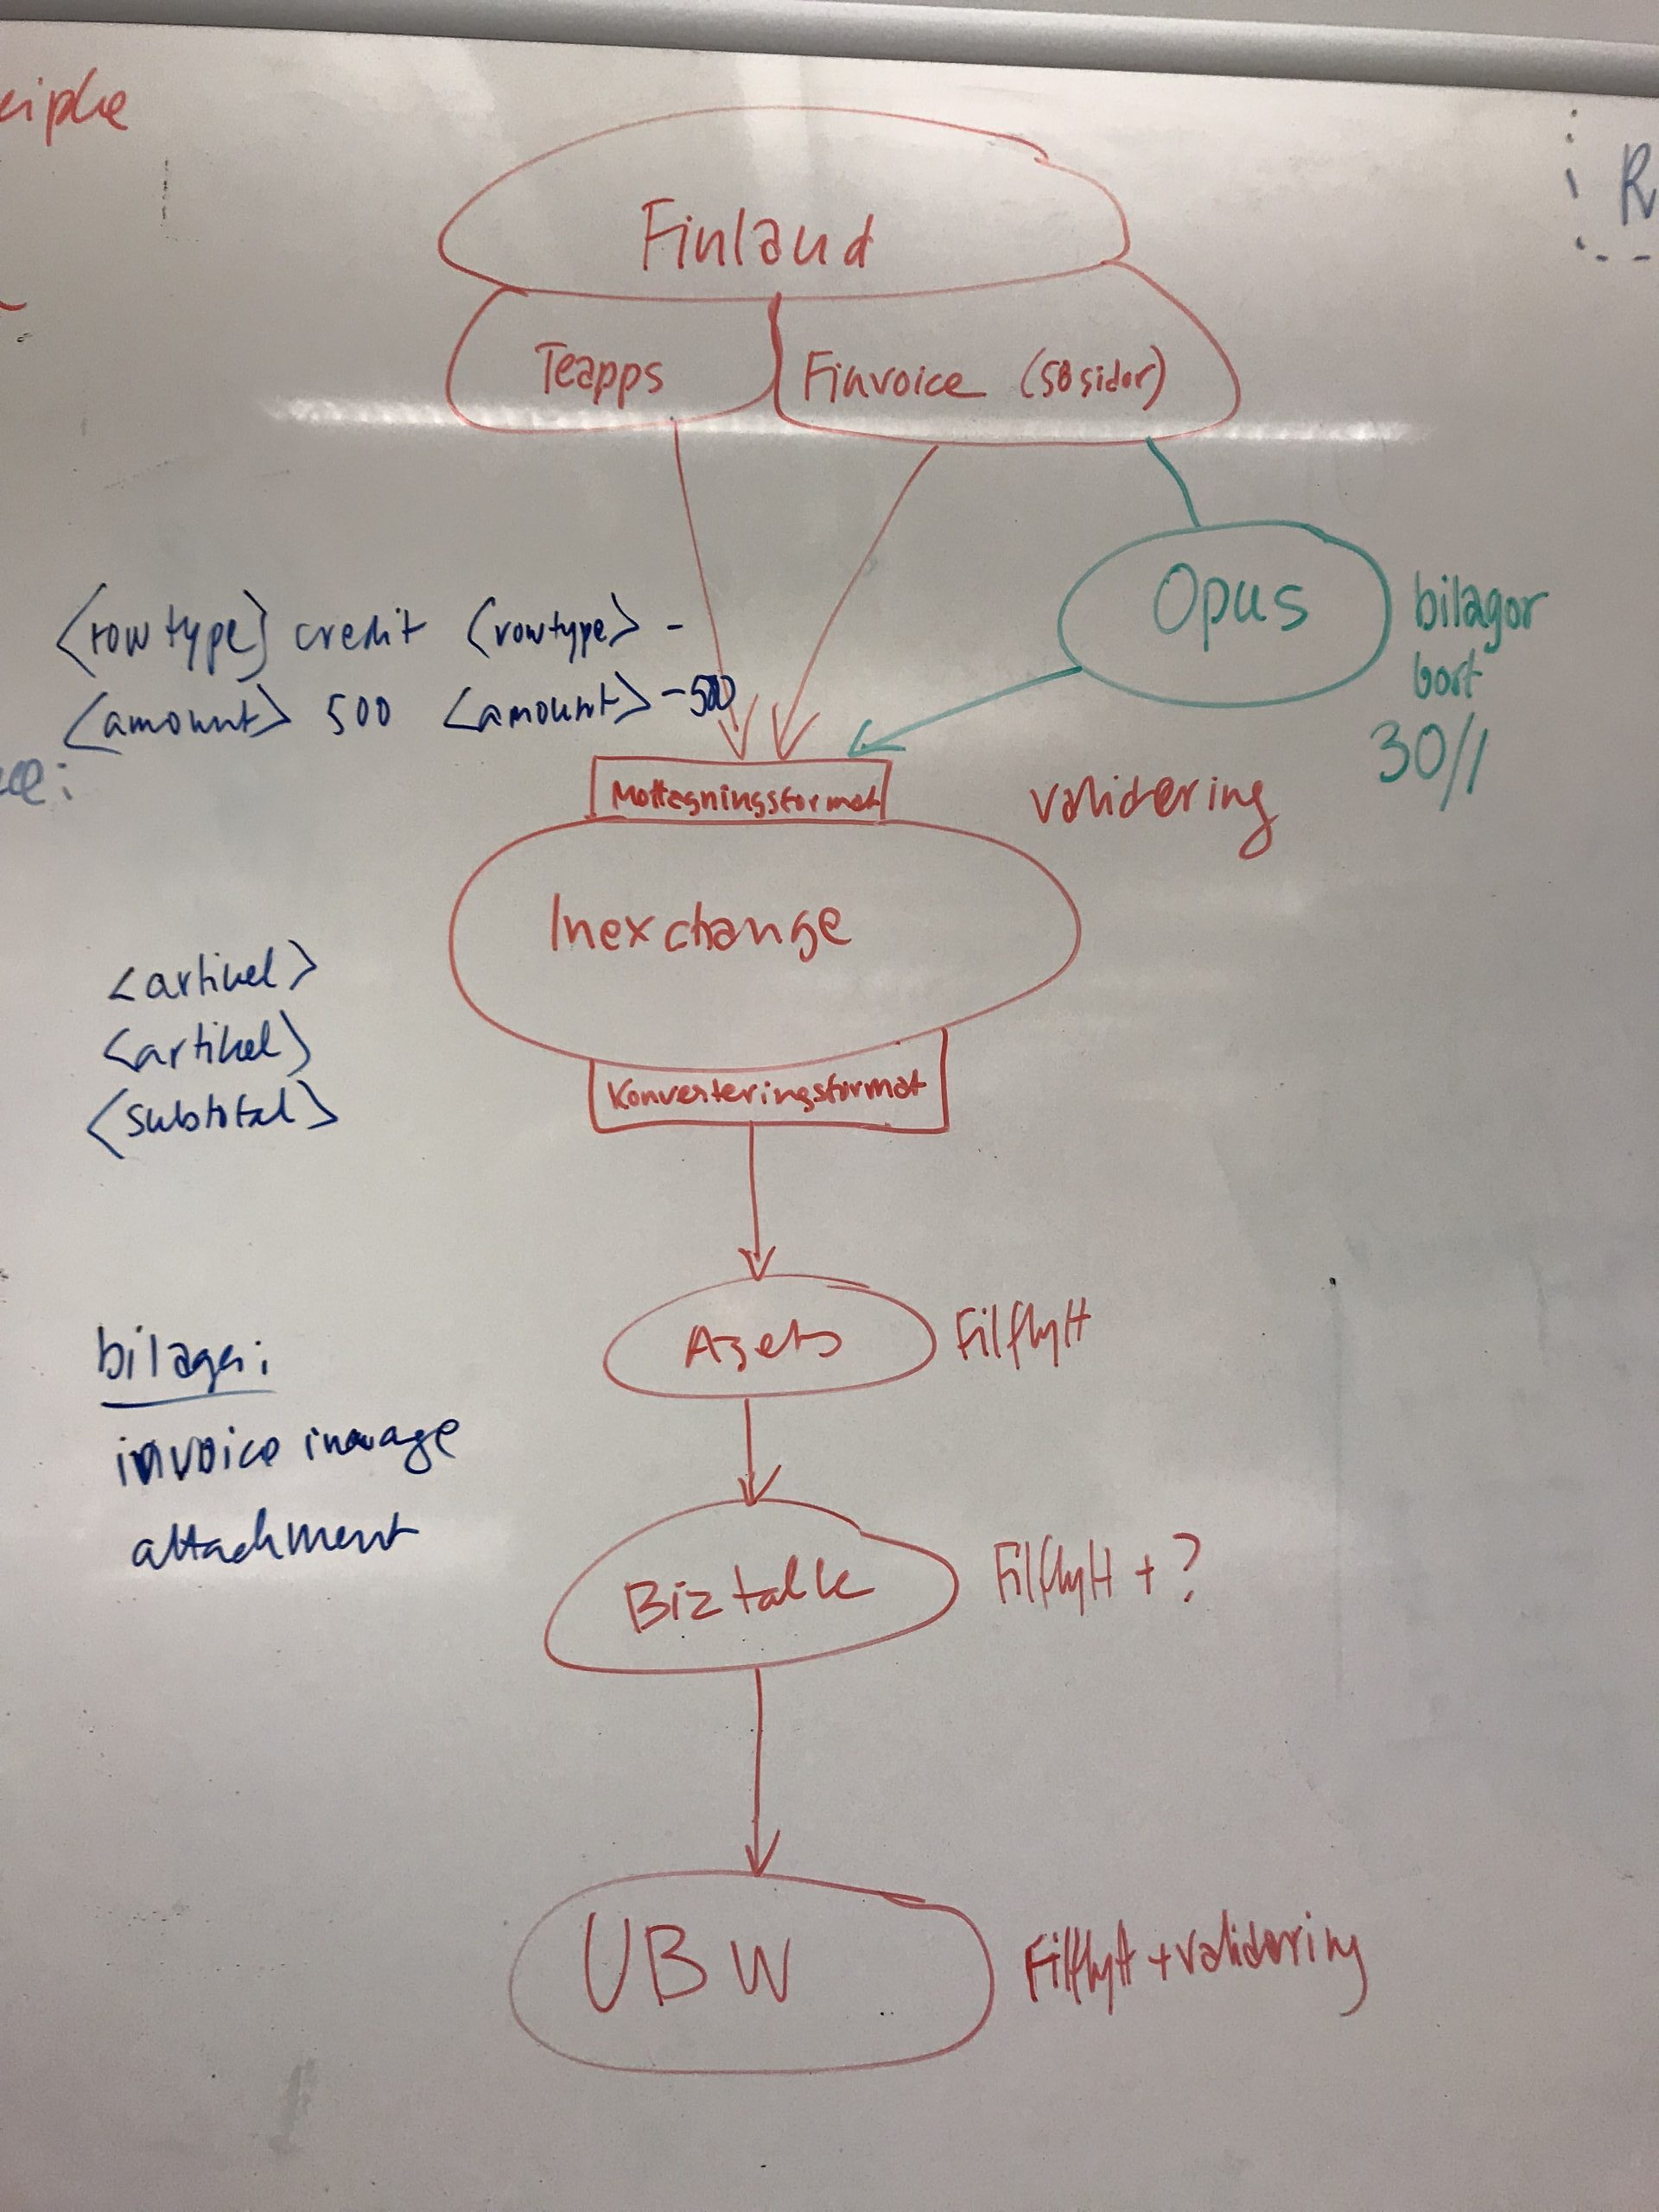 Finland
Teapps
Finvoice (58 sidor)
Opus
bilagor
bort
30/1
<rowtype} credit <rowtype> -
<amount> 500 <amount> -500
Mottagningsformat
validering
Inexchange
<artikel>
<artikel>
<subtotal>
Konverteringsformat
Azets
Filflytt
bilagor:
invoice imavage
attachment
Biztalk
Filflytt + ?
UBW
Filflytt + validering
R